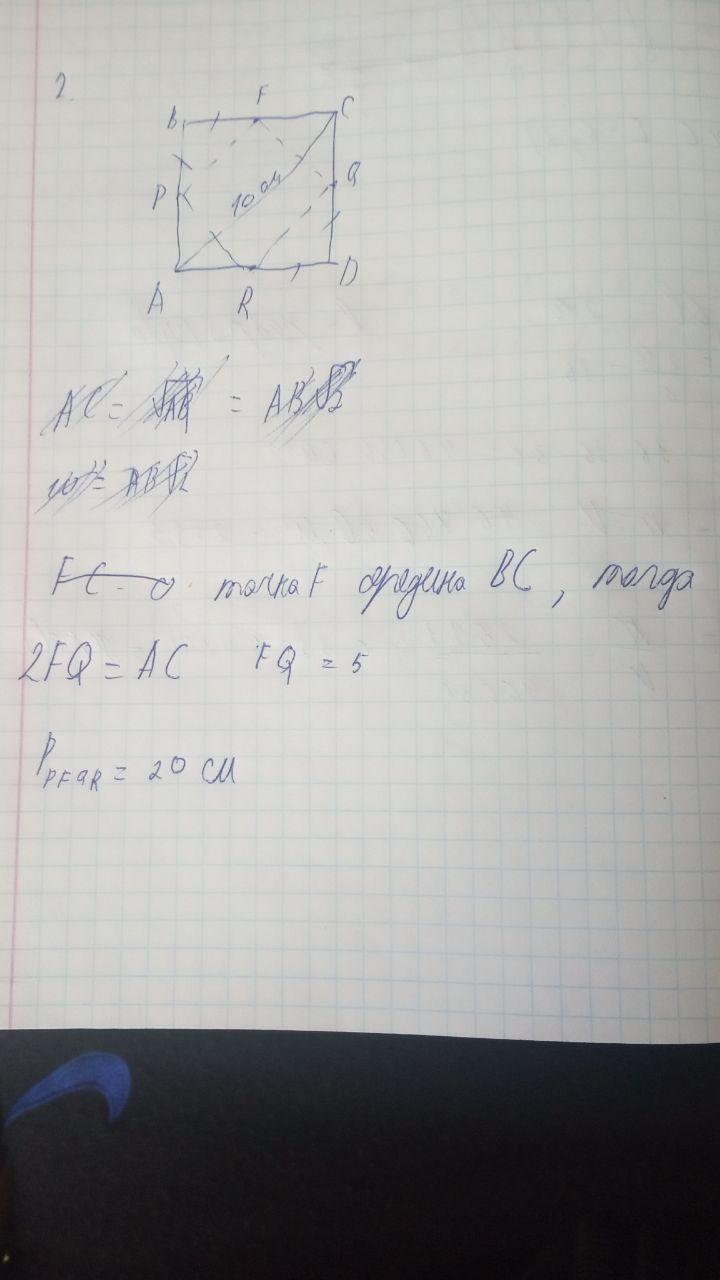 2.
B F C
P 10 см Q
A R D
AC = = AB√2
10 = AB√2
FC точка F середина BC, тогда
2FQ = AC FQ = 5
P PFQR = 20 см